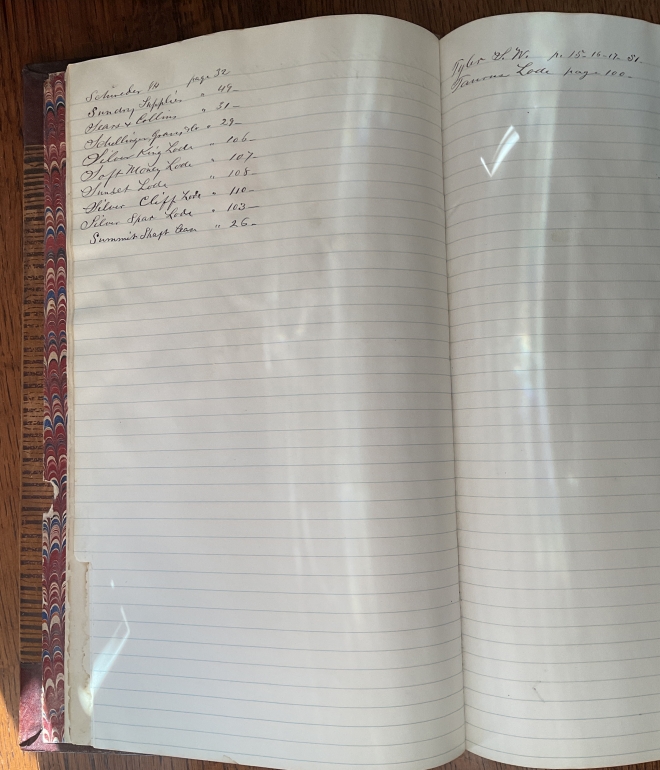 Schroeder page 32
Sundry Supplies " 49-
Stars & Collins " 31-
Schellinger " 29-
Silver King Lode " 106-
Soft Money Lode " 107-
Sunset Lode " 108-
Silver Cliff Lode " 110-
Silver Spar Lode " 103-
Summit Shaft " 26-
Tyler H. W. p. 15-16-17-31-
Lode page 100-